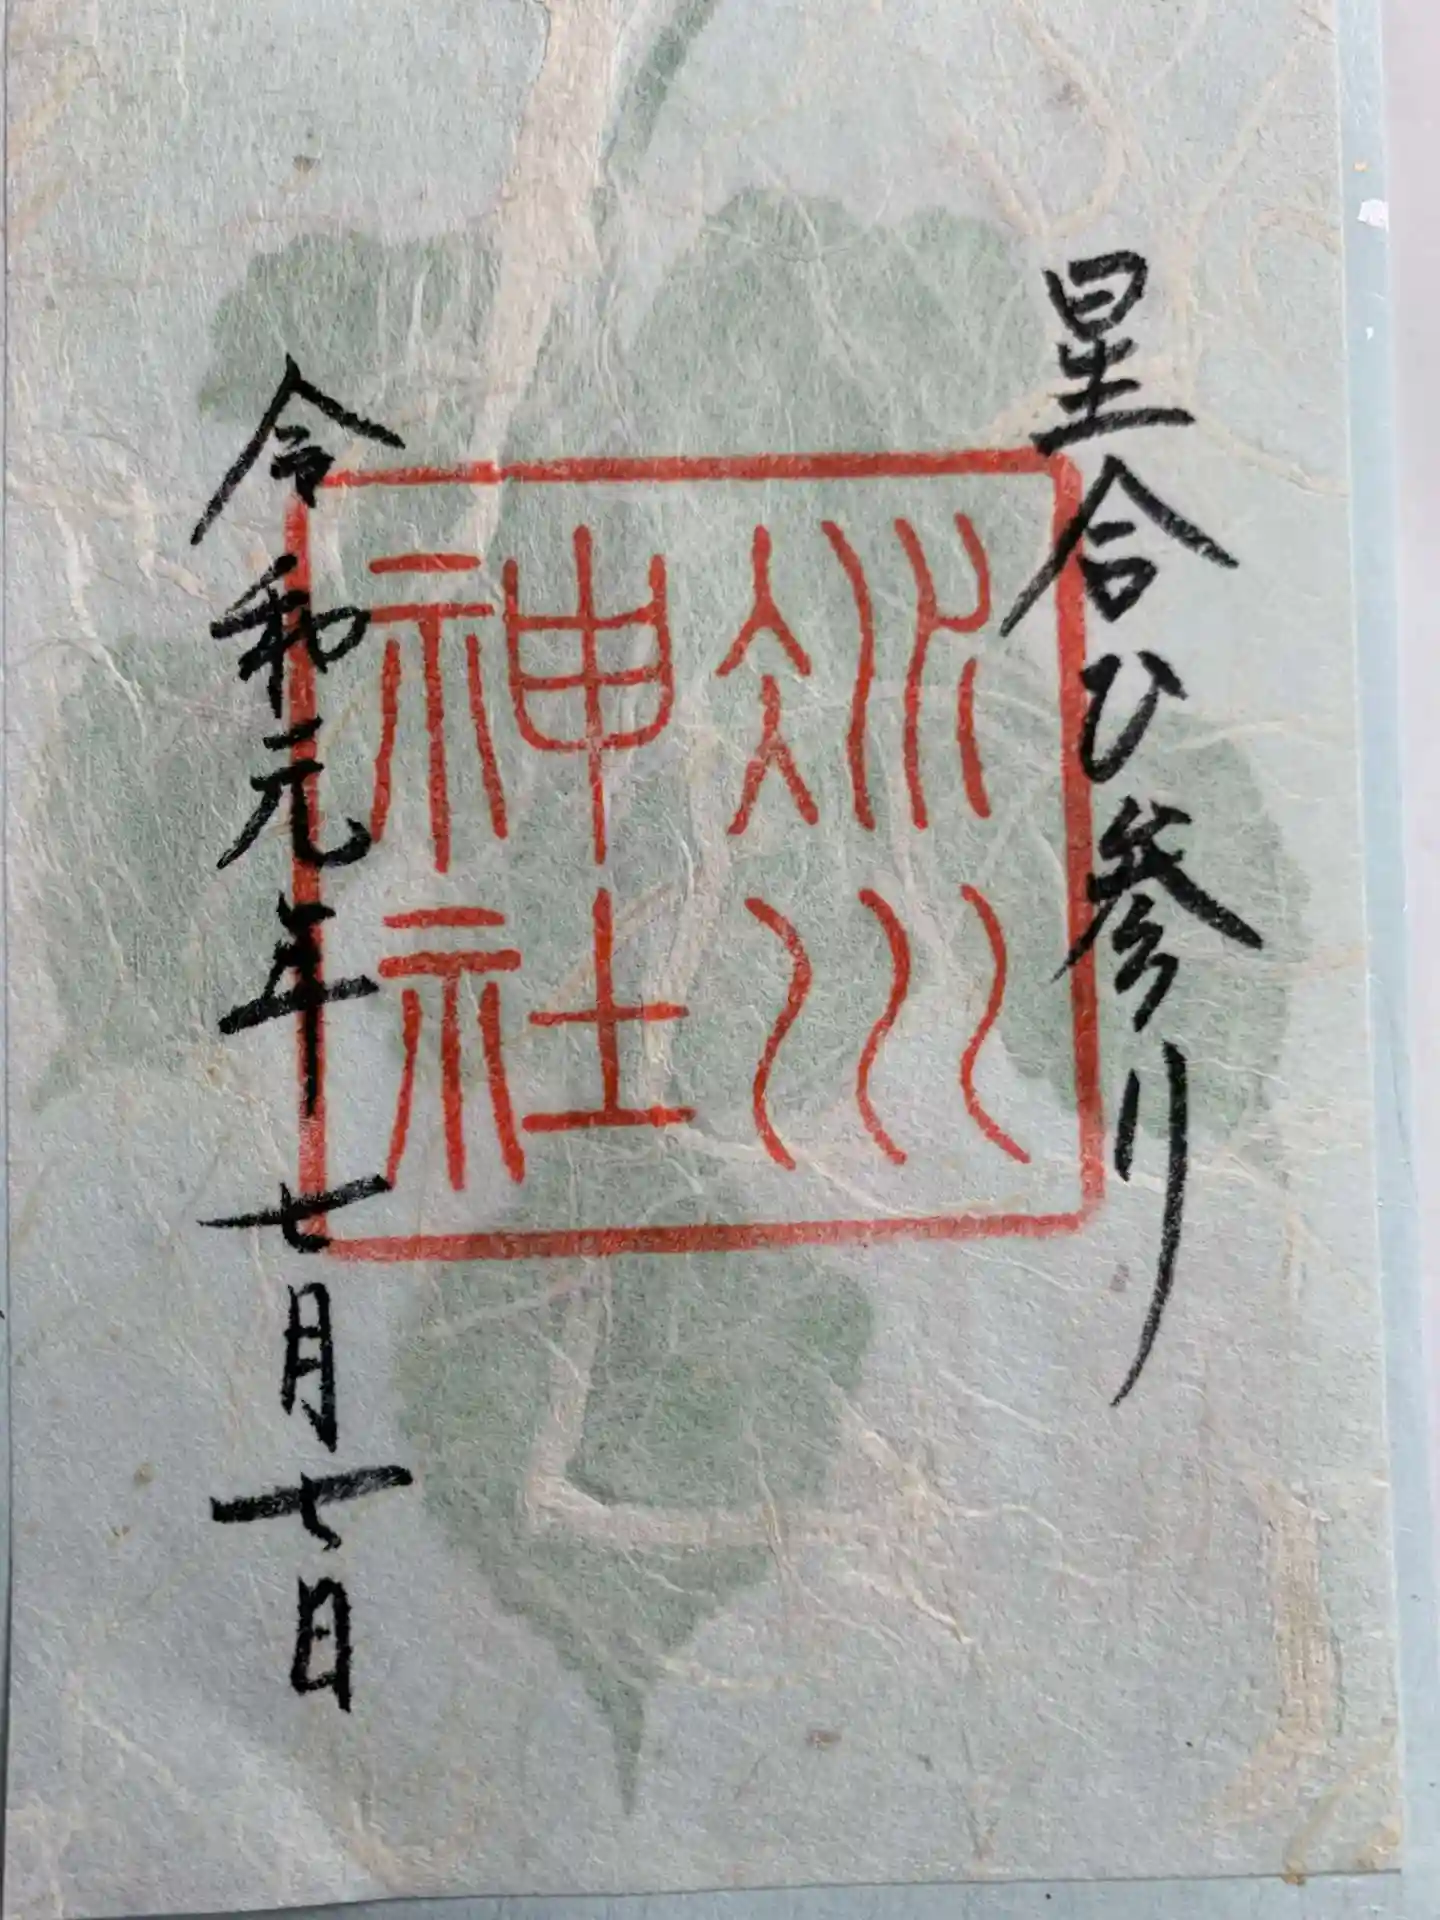 星合ひ参り
冰川
神社
令和元年七月七日